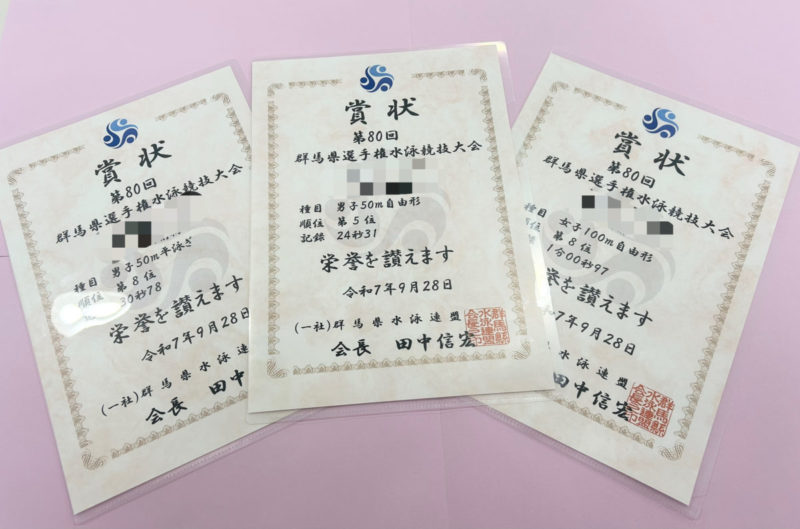 賞状
第80回
群馬県選手権水泳競技大会
種目 男子50m平泳ぎ
順位 第8位
30秒78
栄誉を讃えます
令和7年9月28日
(一社)群馬県水泳連盟
会長 田中
賞状
第80回
群馬県選手権水泳競技大会
種目 男子50m自由形
順位 第5位
記録 24秒31
栄誉を讃えます
令和7年9月28日
(一社)群馬県水泳連盟
会長 田中信宏
賞状
第80回
群馬県選手権水泳競技大会
種目 女子100m自由形
順位 第8位
1分00秒97
栄誉を讃えます
7年9月28日
県水泳連盟
田中信宏